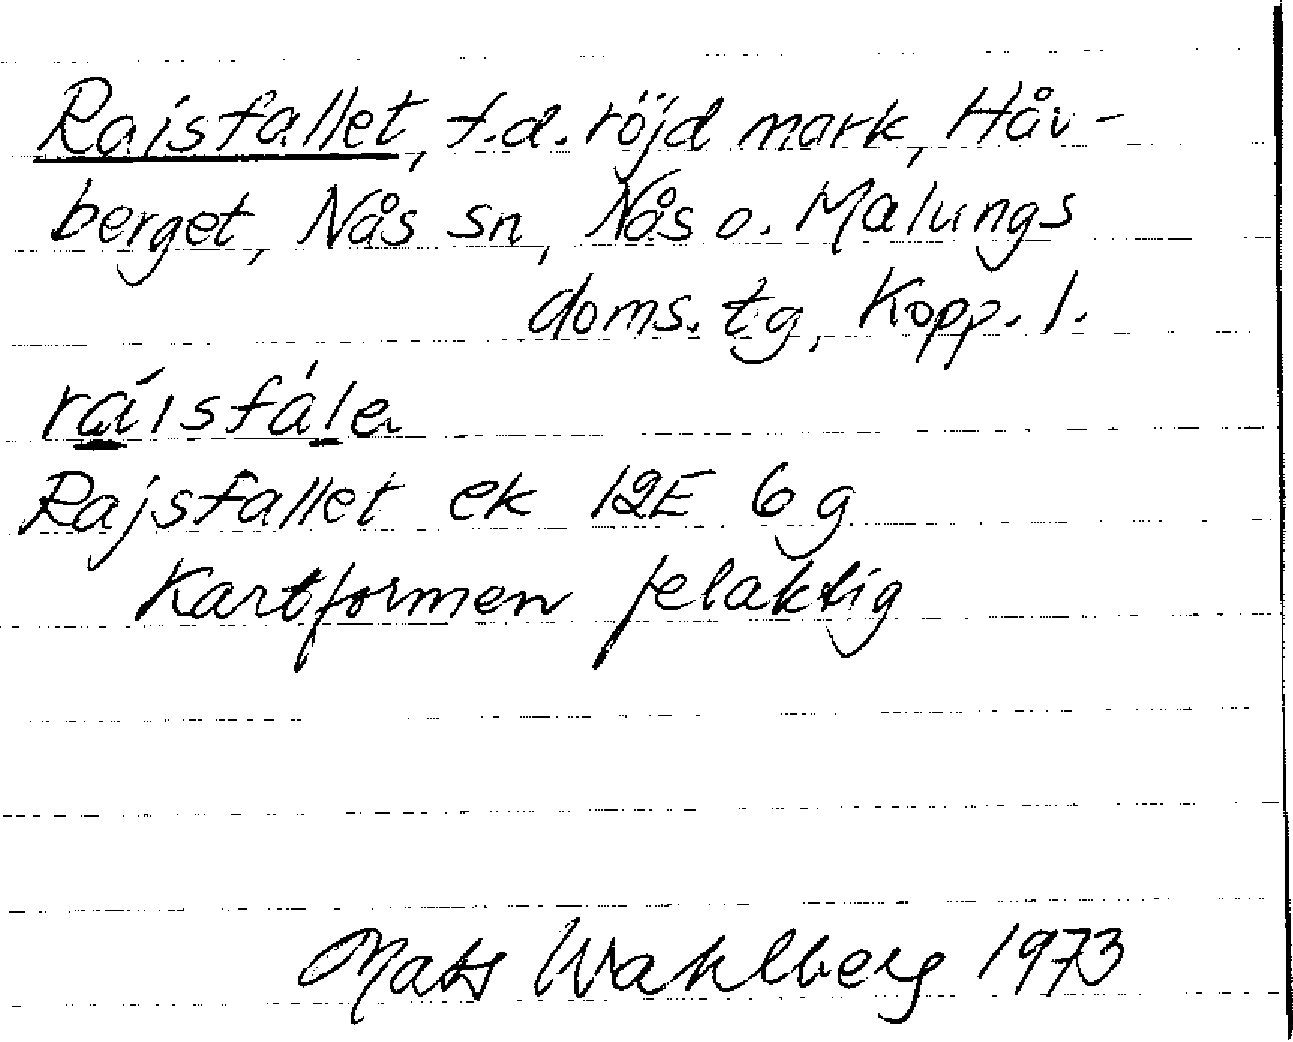 Raisfallet, f.d. röjd mark, Håv-
berget, Nås sn, Nås o. Malungs
doms. tg, Kopp. l.
ráisfále
Rajsfallet ek 12E 6g
Kartformen felaktig
Mats Wahlberg 1973